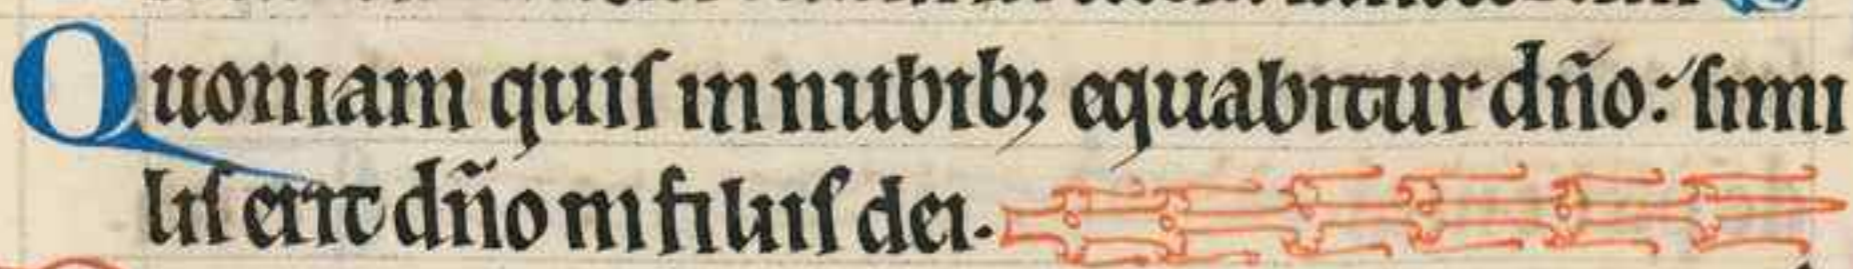 Quoniam quiſ in nubibꝫ equabitur dn̄o: ſimi
liſ erit dn̄o in filiiſ dei.